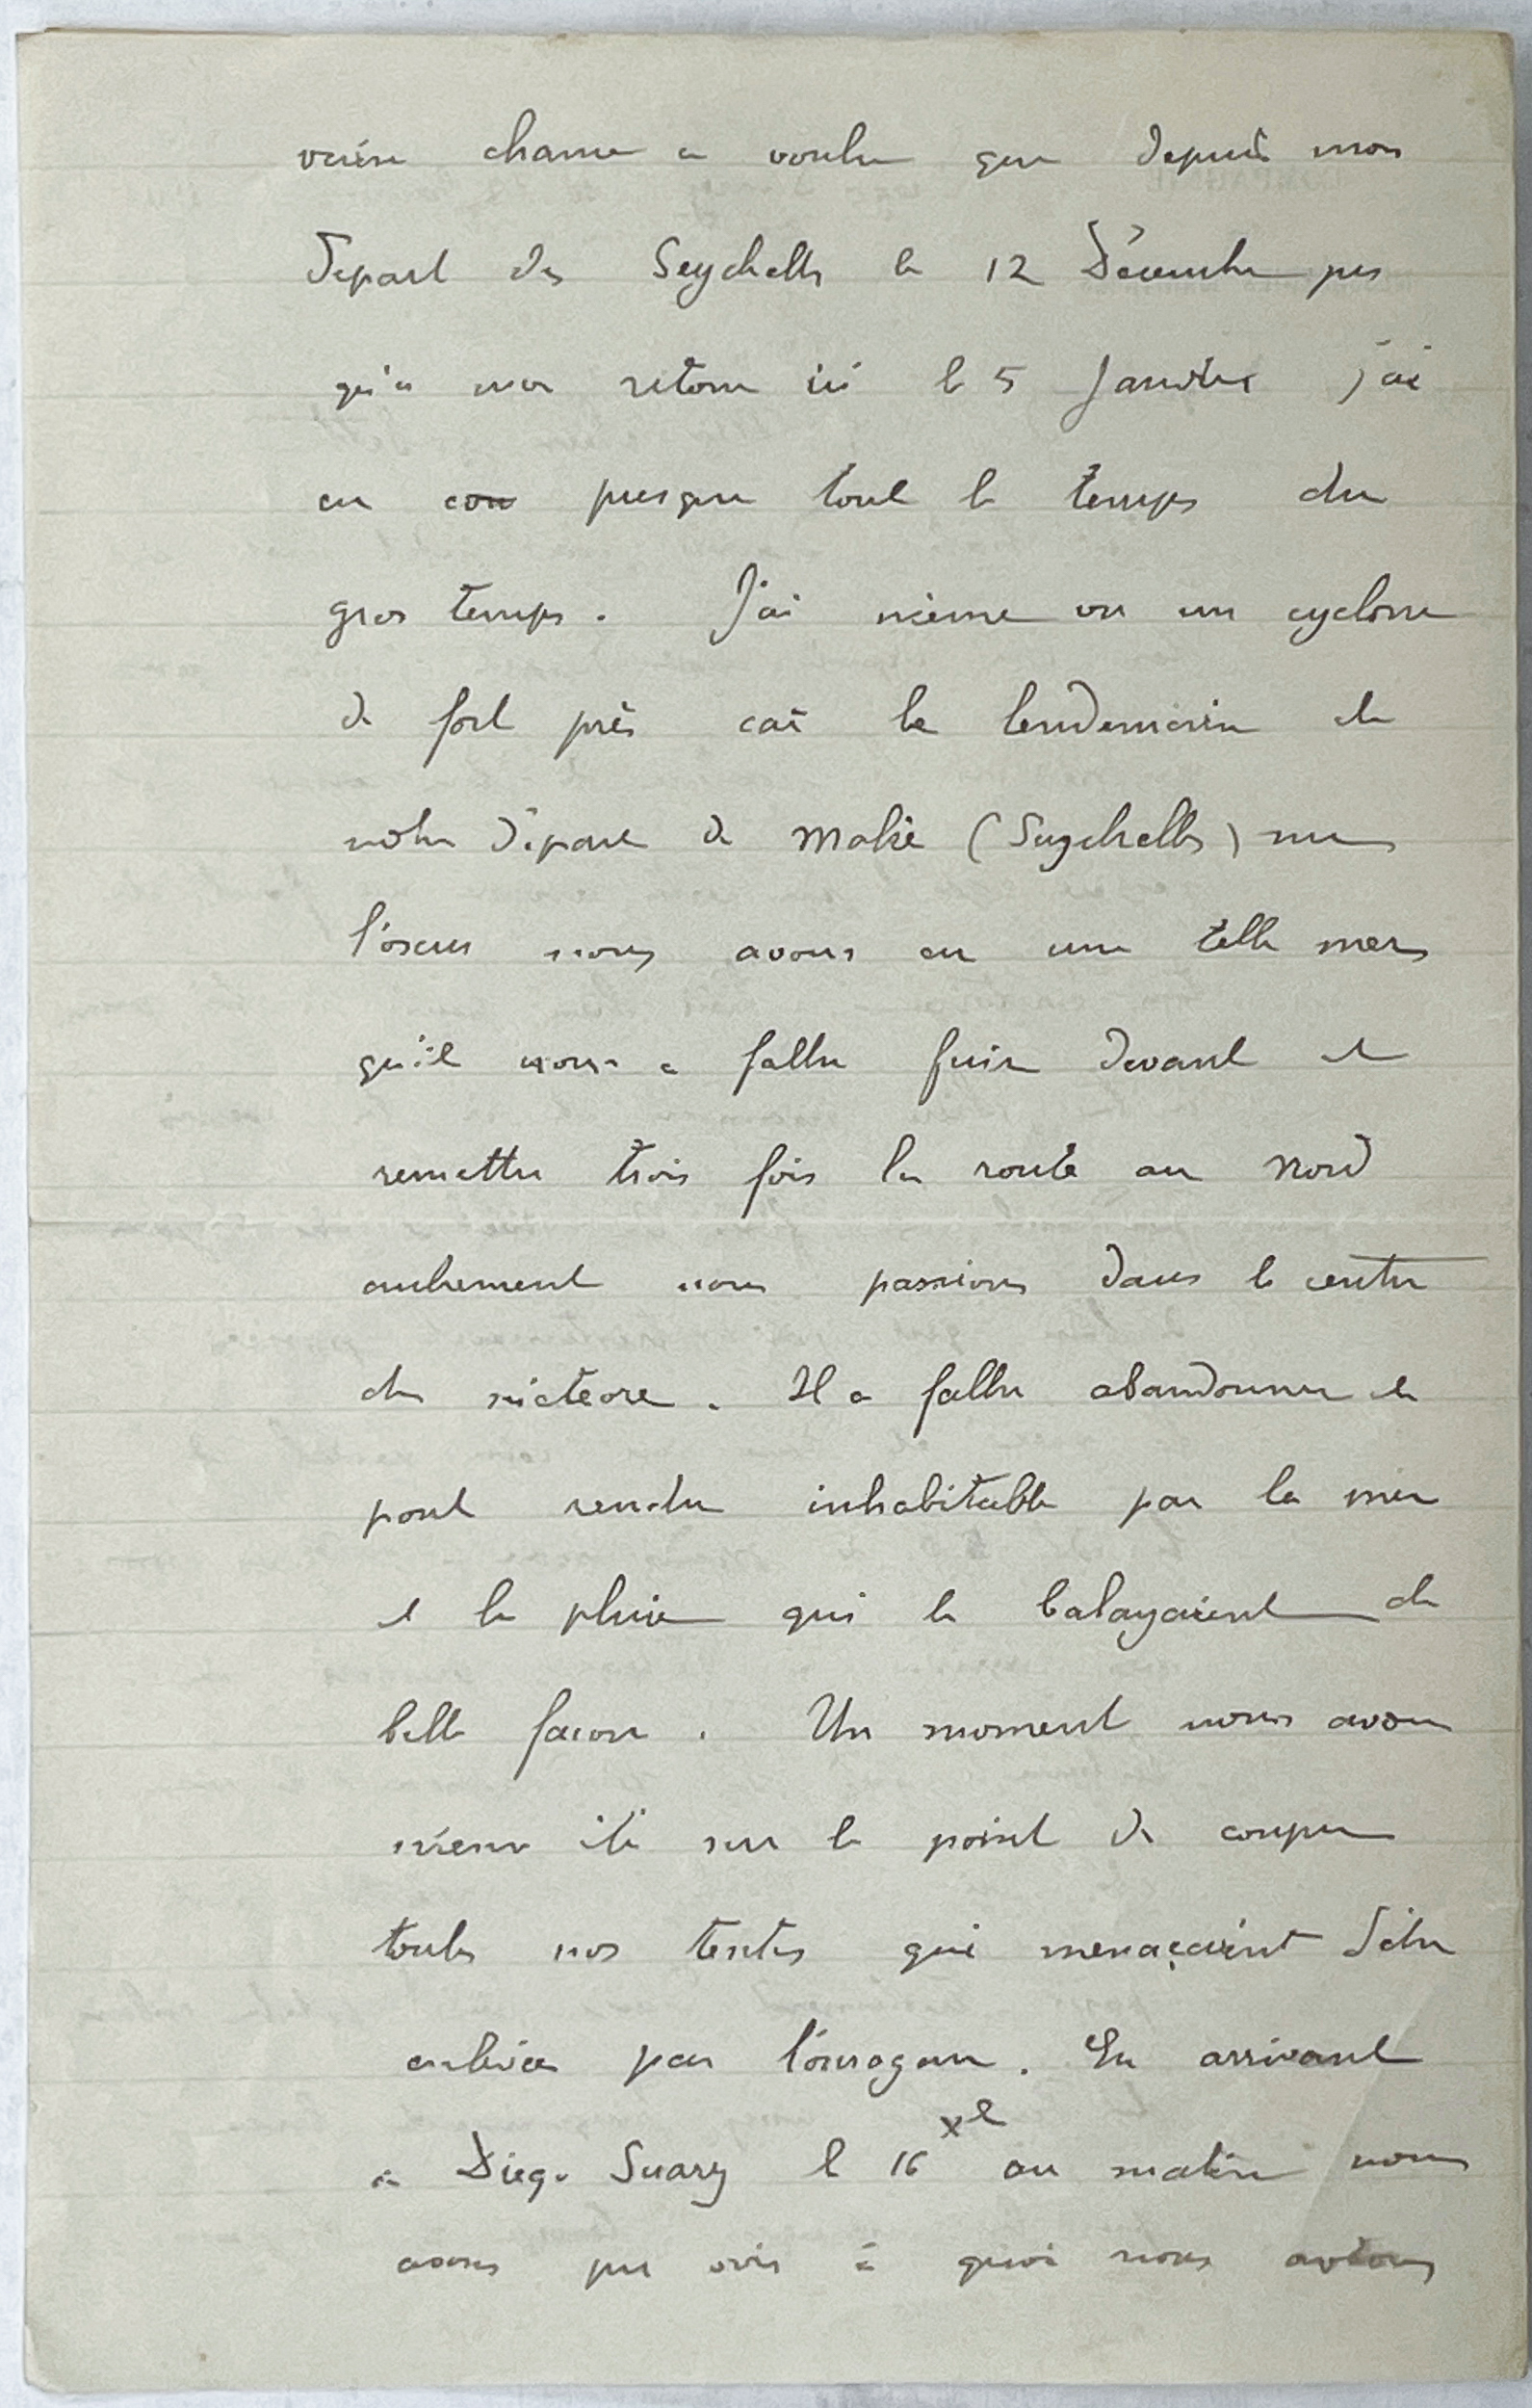 veine chance a voulu que depuis mon
Départ des Seychelles le 12 Décembre jus
qu'à mon retour ici le 5 Janvier j'ai
eu con presque tout le temps du
gros temps. J'ai même vu un cyclone
de fort près car le lendemain de
notre départ de Mahé (Seychelles)
nous avons eu une telle mer
qu'il nous a fallu fuir devant et
remettre trois fois la route au Nord
autrement nous passions dans le centre
du météore. Il a fallu abandonner le
pont rendu inhabitable par la mer
et la pluie qui le balayaient de
belle façon. Un moment nous avons
même été sur le point de couper
toutes nos tentes qui menaçaient d'être
enlevées par l'ouragan. En arrivant
à Diego Suarez le 16 Xe au matin nous
avons pu voir à quoi nous avions